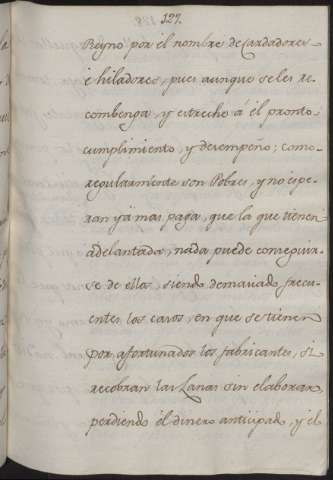 127.
Reyno por el nombre de Cardadores
è hiladores, pues aunque se les re
combenga, y estreche á el pronto
cumplimiento, y desempeño; como
regularmente son Pobres, y no espe-
ran yá mas paga, que la que tienen
adelantada, nada puede conseguir-
se de ellos, siendo demasiado frecu-
entes los casos, en que se tienen
por afortunados los fabricantes, si
recobran las Lanas sin elaborar
perdiendo el dinero anticipado, y el